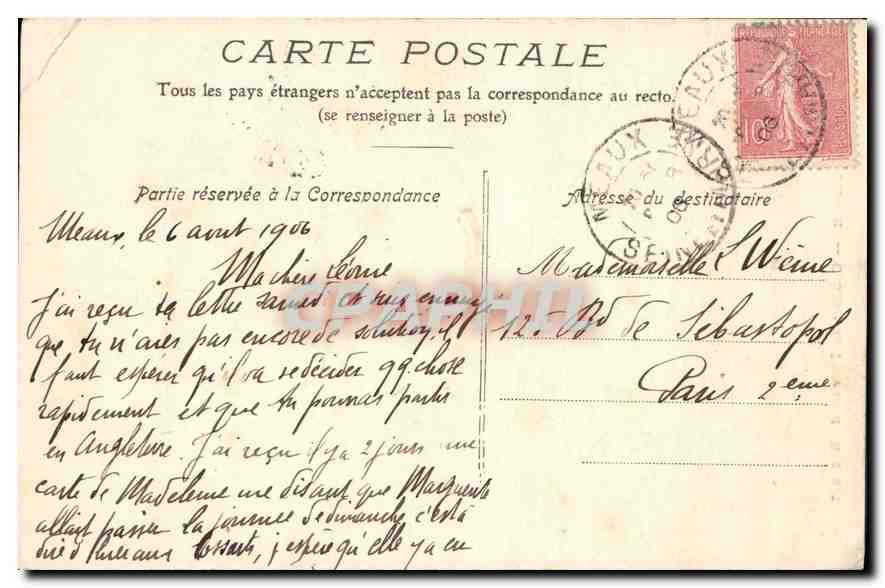 CARTE POSTALE
Tous les pays étrangers n'acceptent pas la correspondance au recto.
(se renseigner à la poste)
Partie réservée à la Correspondance
Adresse du destinataire
MEAUX
SEINE ET MARNE
10
Meaux, le 6 aout 1906
Ma chère Léonie
J'ai reçu ta lettre samedi et suis ennuyé
que tu n'aies pas encore de solution, il
faut espérer qu'il va se décider qq. chose
rapidement et que tu pourras partir
en Angleterre. J'ai reçu il y a 2 jours une
carte de Madeleine me disant que Marguerite
allait passer la journée de dimanche, c'est à
dire d'hier aux, j'espère qu'elle y a eu
Mademoiselle L
125 Bd de Sébastopol
Paris 2eme
CPAPHIL